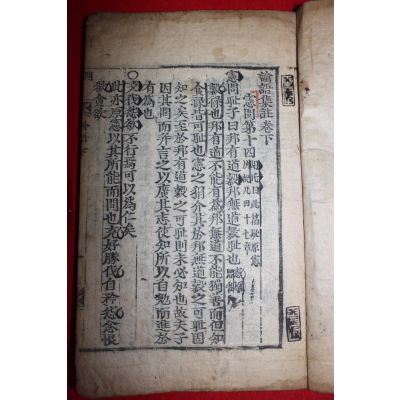 論語集註卷下
憲問第十四 胡氏曰此篇疑原憲所記凡四十七章
憲問恥子曰邦有道穀邦無道穀恥也
穀祿也邦有道不能有為邦無道不能獨善而但知
食祿皆可恥也憲之狷介其於邦無道穀之可恥固
知之矣至於邦有道穀之可恥則未必知也故夫子
因其問而并言之以廣其志使知所以自勉而進於
有為也
○克伐怨欲不行焉可以為仁矣
此亦原憲以其所能而問也克好勝伐自矜怨忿恨
欲貪欲